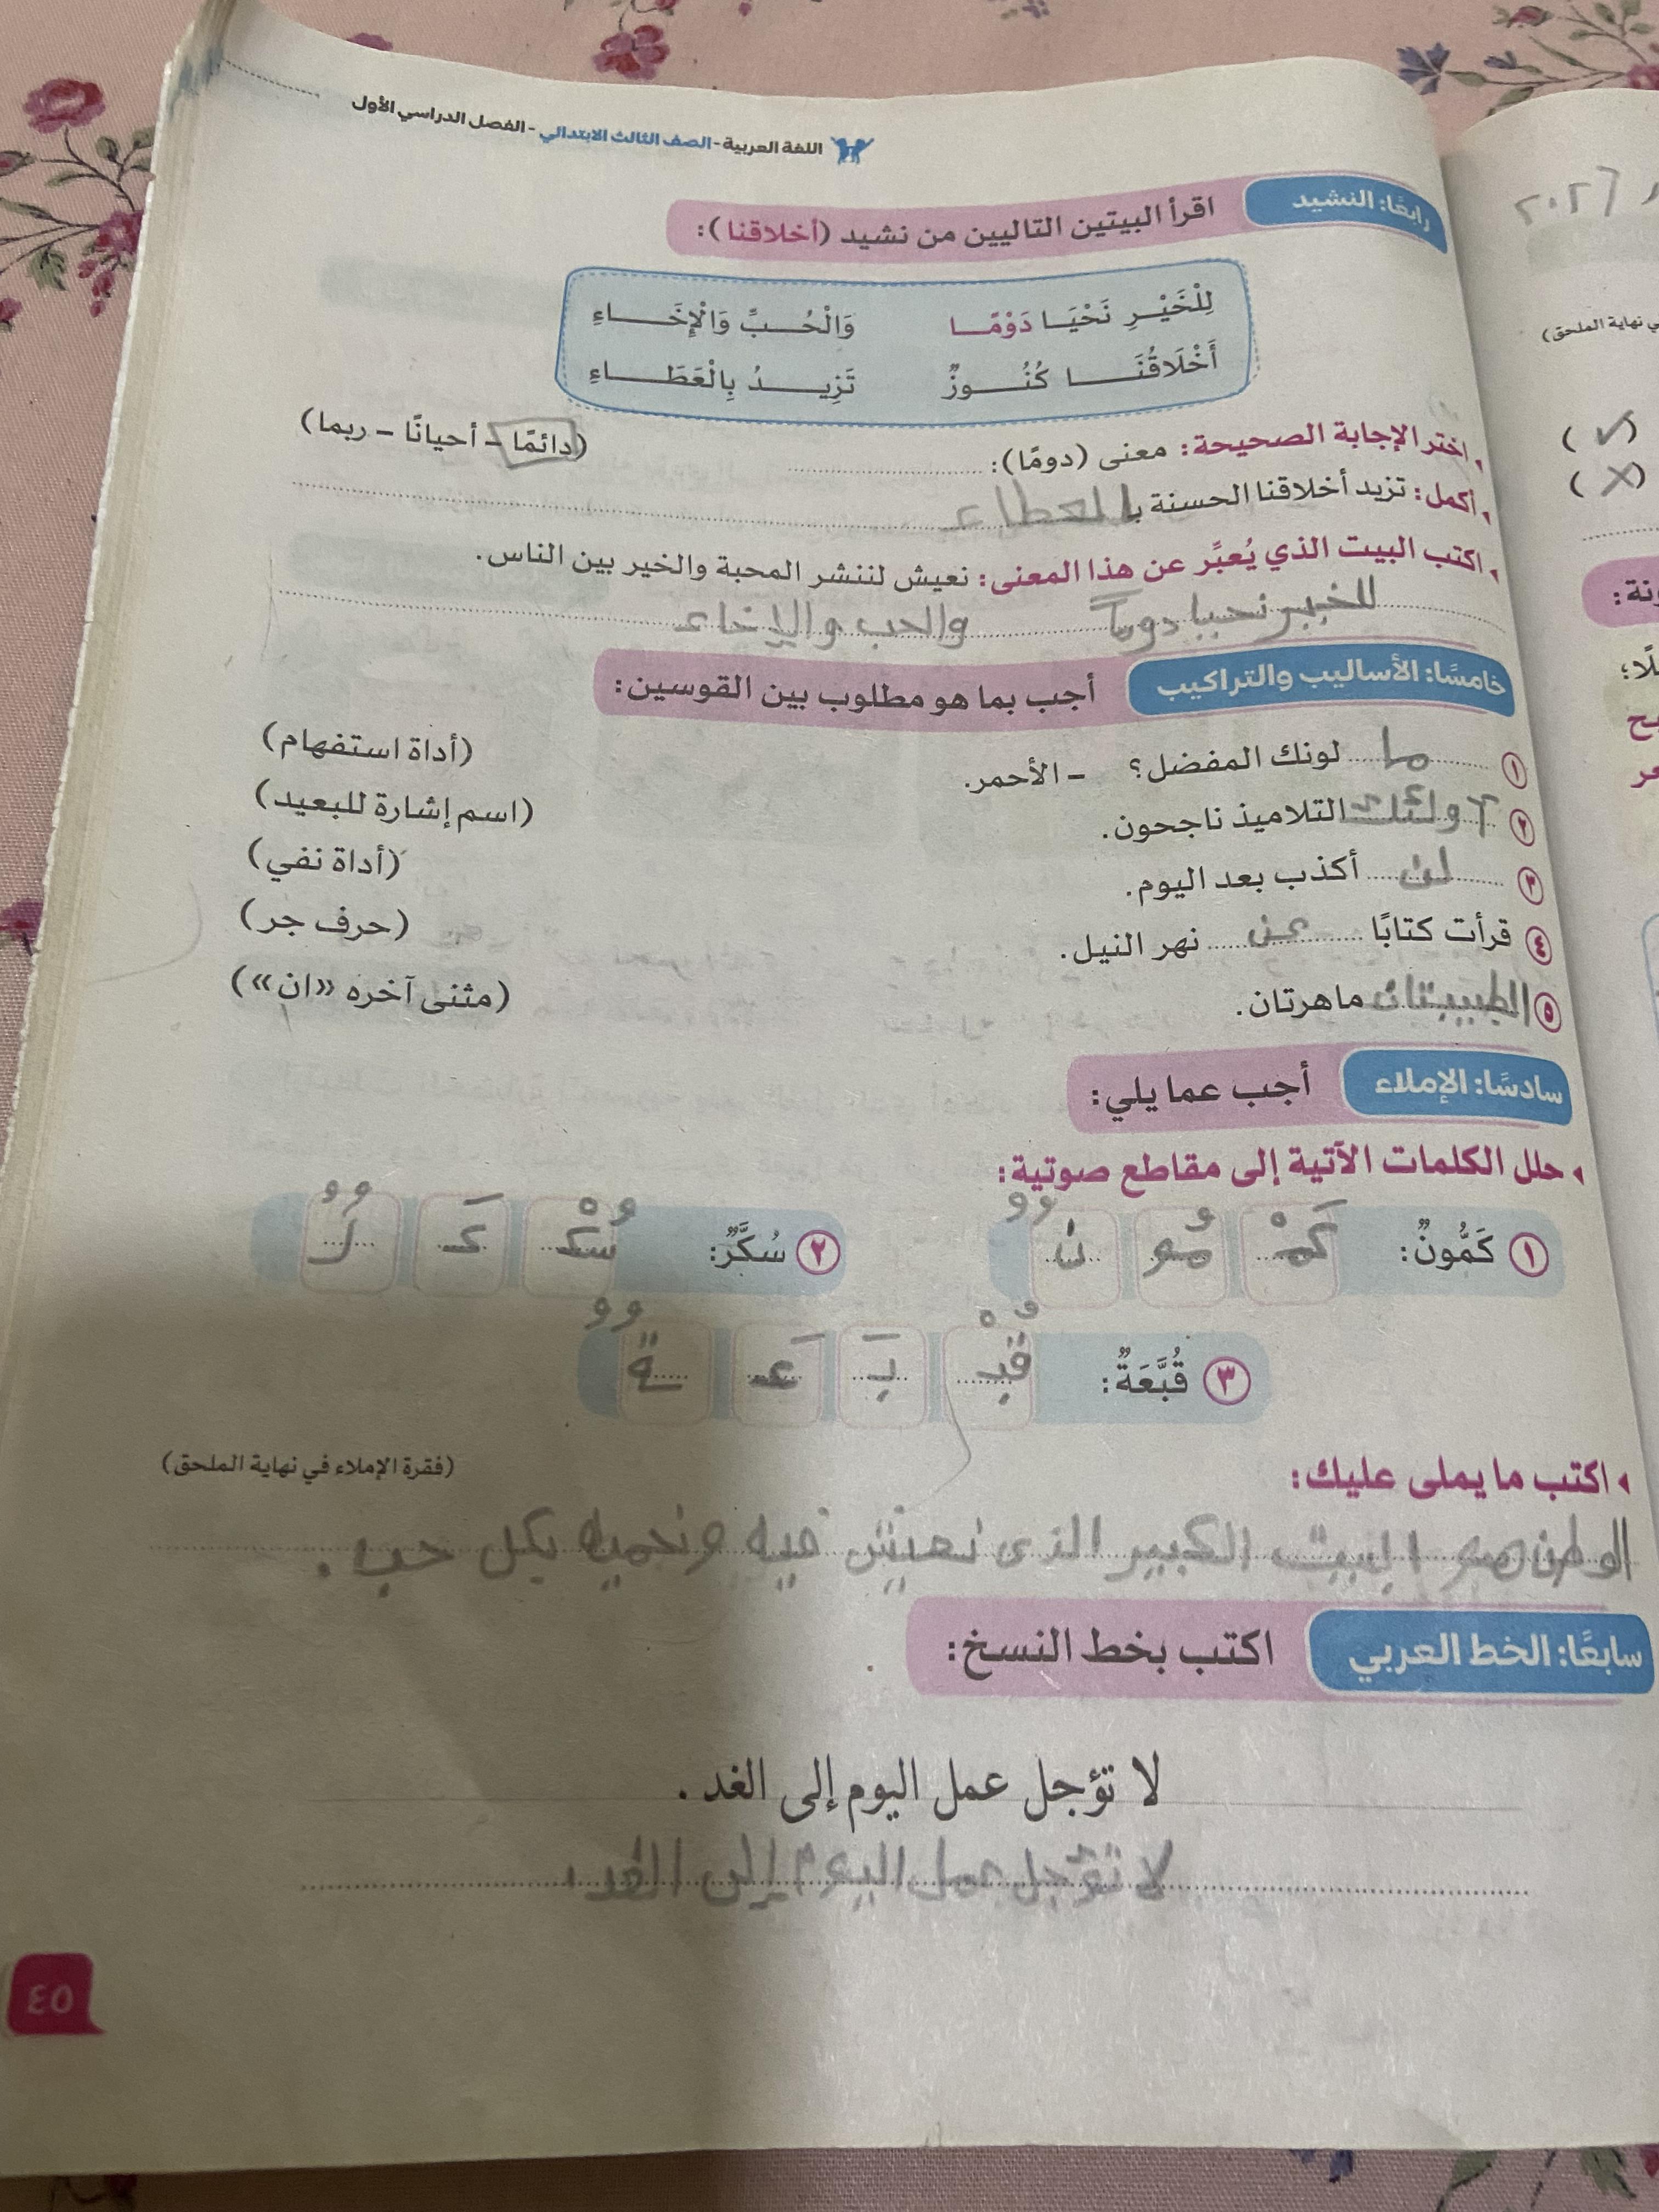 اللغة العربية - الصف الثالث الابتدائي - الفصل الدراسي الأول
رابعًا: النشيد اقرأ البيتين التاليين من نشيد (أخلاقنا):
لِلْخَيْرِ نَحْيَا دَوْمًا وَالْحُبِّ وَالْإِخَاءِ
أَخْلَاقُنَا كُنُوزٌ تَزِيدُ بِالْعَطَاءِ
اختر الإجابة الصحيحة: معنى (دومًا): (دائمًا - أحيانًا - ربما)
أكمل: تزيد أخلاقنا الحسنة بـ العطاء
اكتب البيت الذي يُعبِّر عن هذا المعنى: نعيش لننشر المحبة والخير بين الناس.
للخير نحيا دوماً والحب والإخاء
خامسًا: الأساليب والتراكيب أجب بما هو مطلوب بين القوسين:
١ ما لونك المفضل؟ - الأحمر. (أداة استفهام)
٢ أولئك التلاميذ ناجحون. (اسم إشارة للبعيد)
٣ لن أكذب بعد اليوم. (أداة نفي)
٤ قرأت كتابًا عن نهر النيل. (حرف جر)
٥ الطبيبتان ماهرتان. (مثنى آخره «ان»)
سادسًا: الإملاء أجب عما يلي:
حلل الكلمات الآتية إلى مقاطع صوتية:
١ كَمُّونٌ: كَمْ مُو نٌ ٢ سُكَّرٌ: سُكْ كَ رٌ
٣ قُبَّعَةٌ: قُبْ بَ عَ ةٌ
اكتب ما يملى عليك: (فقرة الإملاء في نهاية الملحق)
الوطن هو البيت الكبير الذى نعيش فيه ونحميه بكل حب.
سابعًا: الخط العربي اكتب بخط النسخ:
لا تؤجل عمل اليوم إلى الغد.
لا تؤجل عمل اليوم إلى الغد.
٤٥
٢٠٢٦
ي نهاية الملحق)
(✓)
(✗)
ونة:
لًا؛